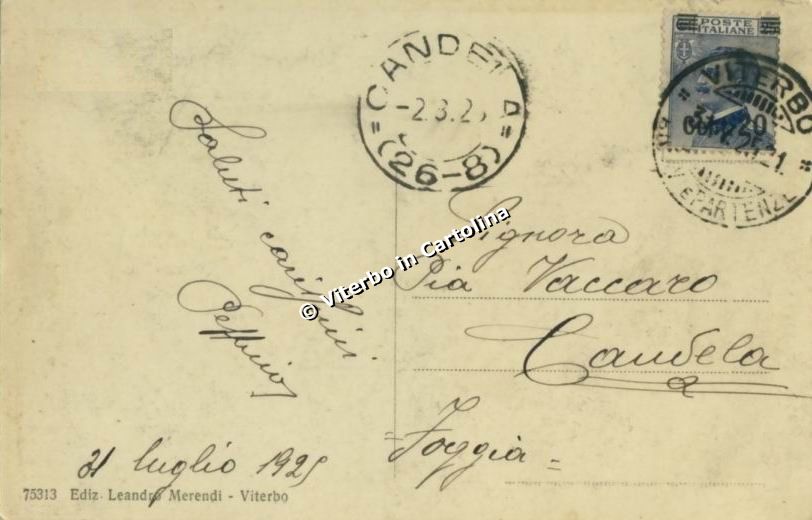 POSTE
ITALIANE
CANDELA
-2.8.25
(26-8)
VITERBO
PARTENZE
Saluti carissimi
Peppino
31 luglio 1925
Signora
Pia Vaccaro
Candela
=Foggia=
© Viterbo in Cartolina
75313 Ediz. Leandro Merendi - Viterbo